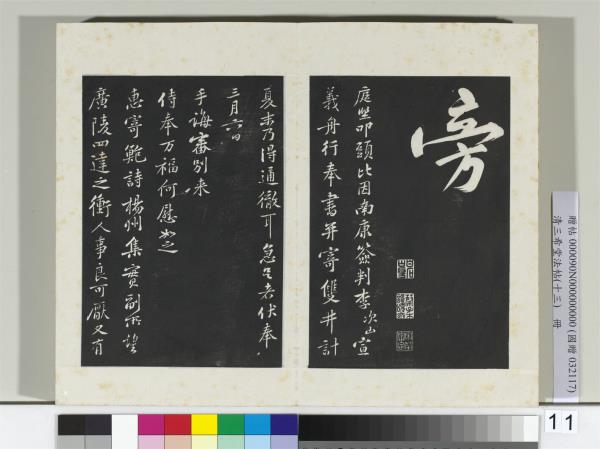 旁
庭堅叩頭比因南康簽判李次山宣
義舟行奉書并寄雙井計
夏末乃得通徹耳急足者伏奉
三月六日
手誨審別來
侍奉万福何慰如之
惠寄鮑詩楊州集實副所望
廣陵四達之衝人事良可厭又有
贈帖 000090N000000000 (國贈 032117)
清三希堂法帖(十三) 冊
11